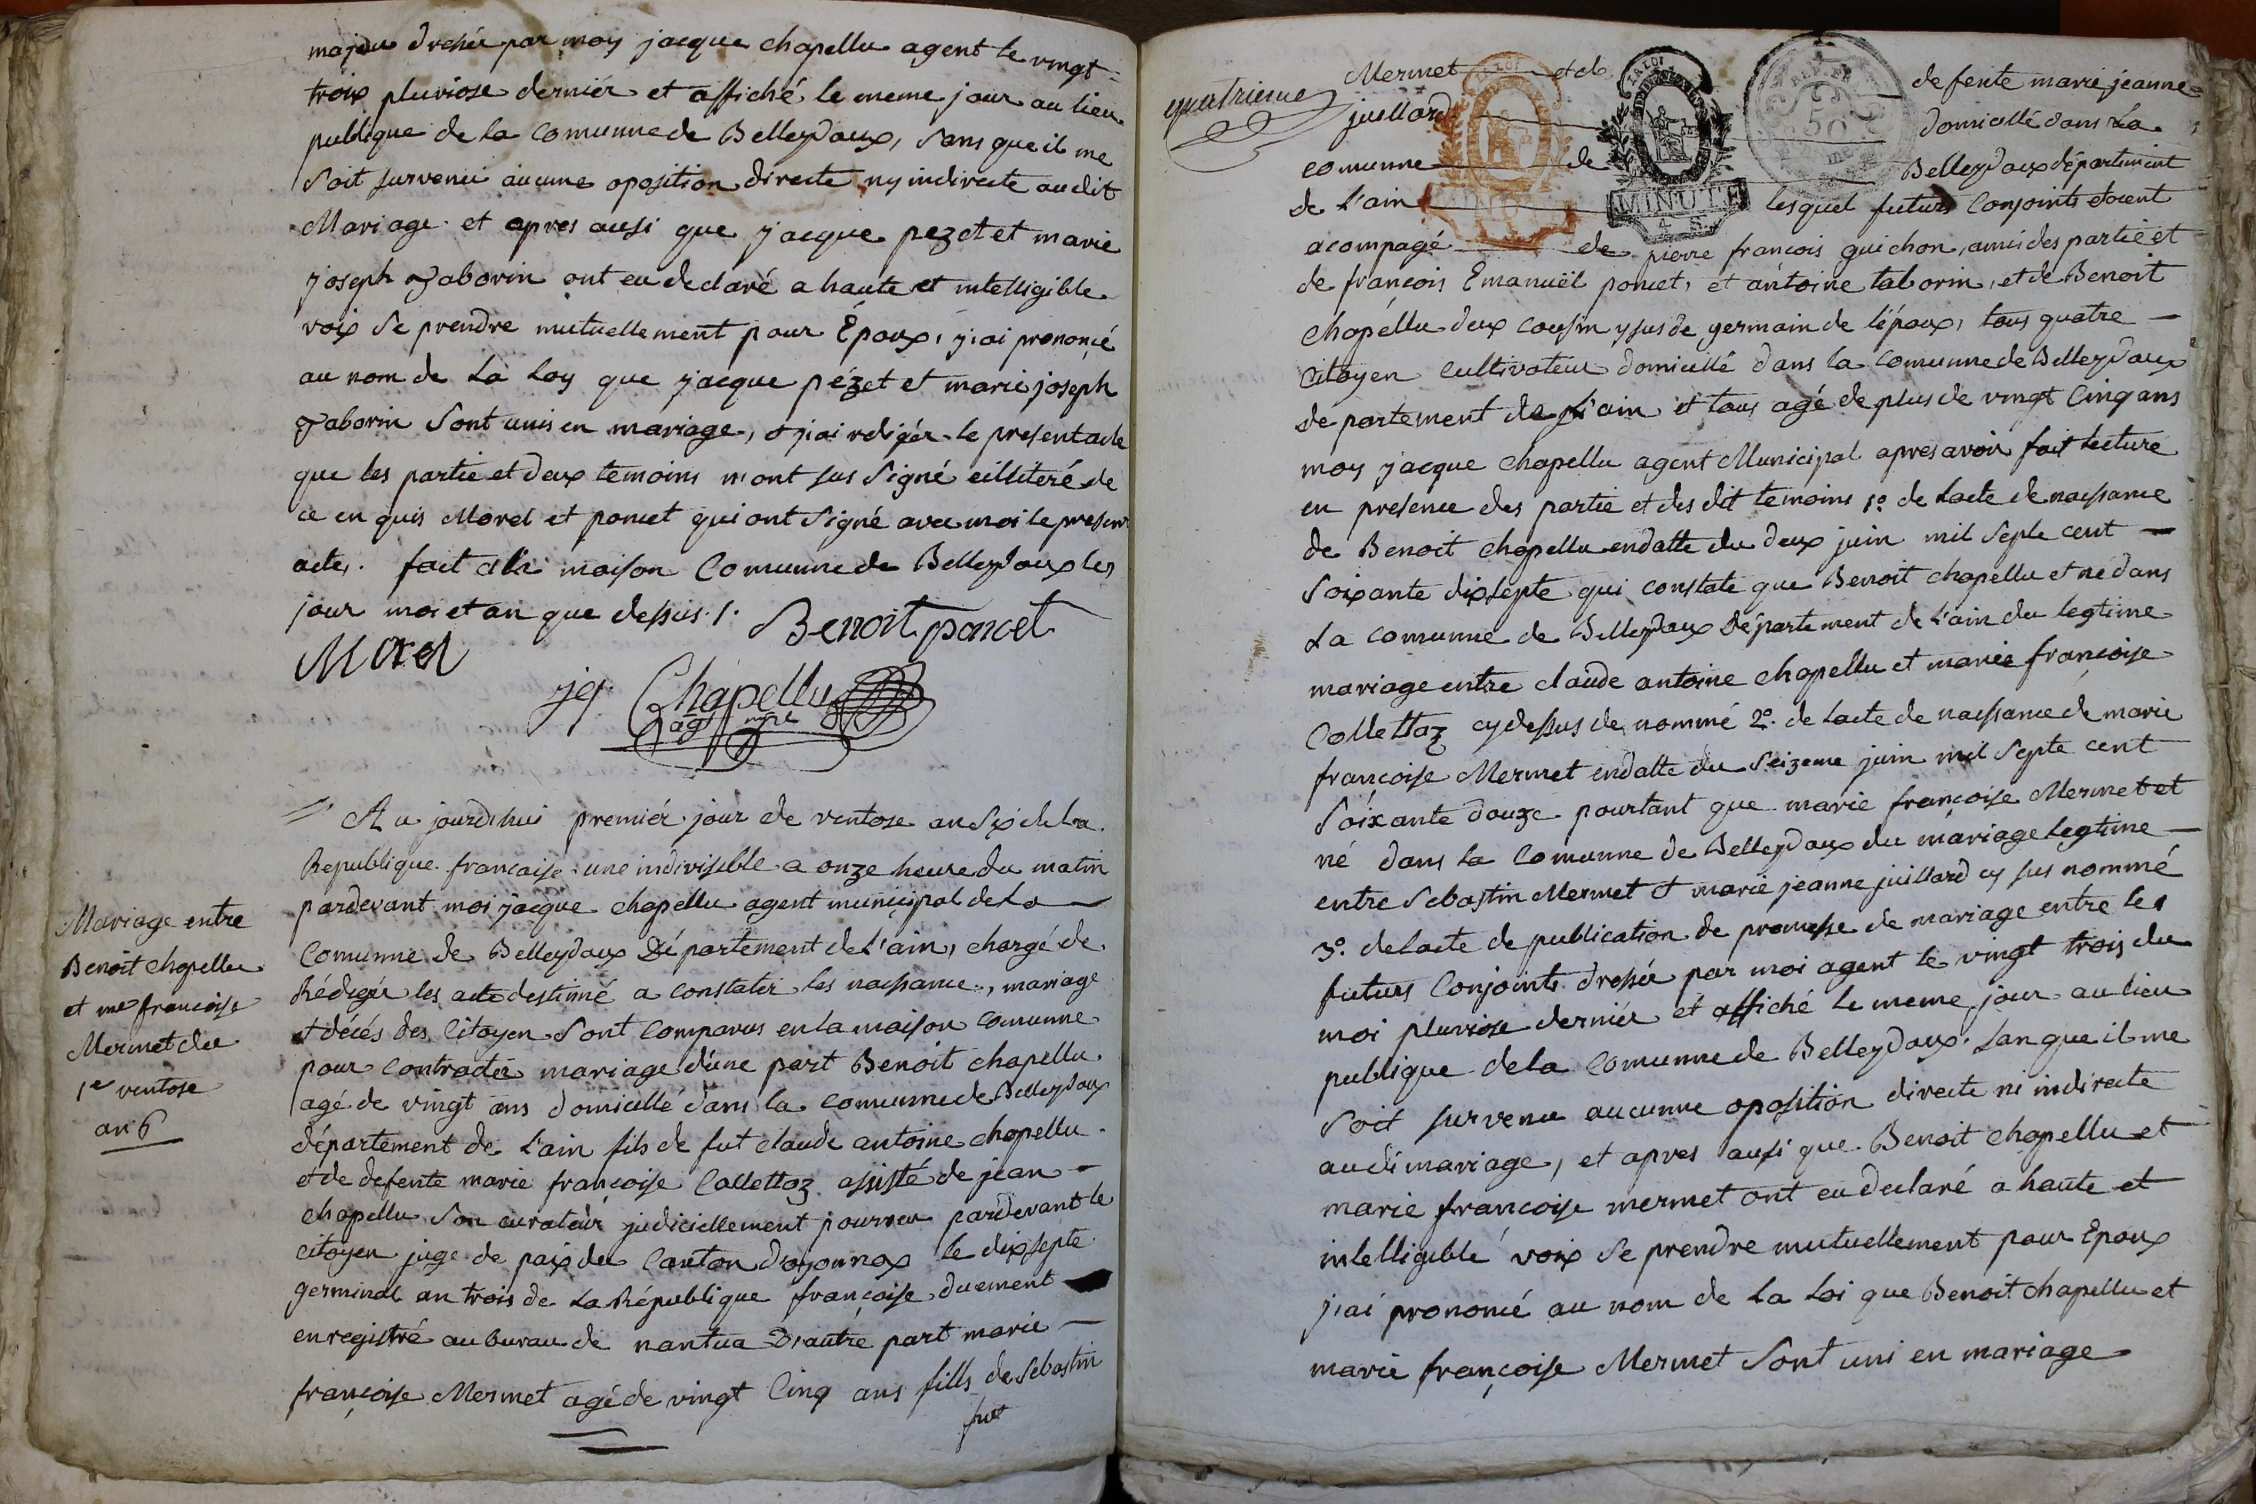 majeur dressée par moy jacque chapellu agent le vingt=
trois pluviose derniér et affiché le meme jour au lieu
publique de la Comunne de Belleydoux, sans que il me
soit survenu aucune oposition directe ny indirecte audit
Mariage et apres ausi que jacque pezet et marie
joseph Taborin ont eu declaré a haute et intelligible
voix se prendre mutuellement pour Epoux, j'ai prononcé
au nom de La Loy que jacque pézet et marie joseph
Taborin sont unis en mariage, et j'ai redigér le present acte
que les partie et deux temoins n'ont sus signé eillitéré de
ce en quis Morel et poncet qui ont signé avec moi le present
acte. fait a la maison Comunne de Belleydoux les
jour moi et an que dessus ./.
Benoit poncet
Morel
jq Chapellu
agt mpl
Au jourd'hui premiér jour de ventose an six de la
Republique francaise une indivisible a onze heure du matin
pardevant moi jacque chapellu agent municipal de La
Comunne de Belleydoux Département de L'ain, chargé de
Rédigér les acte destinné a constatér les naissance, mariage
et décés des Citoyen sont Comparus en la maison Comunne
pour Contractér mariage d'une part Benoit chapellu
agé de vingt ans domicillé dans la comunne de Belleydoux
département de L'ain fils de fut claude antoine chapellu
et de defente marie françoise Collettaz assisté de jean
chapellu son curateur judiciellement pourvu pardevant le
citoyen juge de paix du Canton d'oyonnax le dix septe
germinal an trois de La République françoise duement
enregistré au bureau de nantua D'autre part marie
françoise Mermet agé de vingt Cinq ans fills de sebastin
fut
Mariage entre
Benoit chapellu
et me francoise
Mermet du
1er ventose
an 6
quatrieme
Mermet et de defente marie jeanne
juillard domicillé dans La
comunne de Belleydoux département
de L'ain lesquel futurs Conjoints etoient
acompagé de pierre francois guichon, ami des partie et
de francois Emanuël poncet, et antoine taborin, et de Benoit
chapéllu deux cousin ysus de germain de l'époux, tous quatre
Citoyen cultivateur domicillé dans la Comunne de Belleydoux
departement de L'ain et tous agé de plus de vingt Cinq ans
moy jacque chapellu agent Municipal apres avoir fait lecture
en presence des partie et des dit temoins 1o. de Lacte de naissance
de Benoit chapellu en datte du deux juin mil septe cent
soixante dix septe qui constate que Benoit chapellu et ne dans
La comunne de Belleydoux Département de L'ain du legtime
mariage entre claude antoine chapellu et marie françoise
Collettaz cy dessus de nommé 2o. de Lacte de naissance de marie
françoise Mermet en datte du seizeme juin mil septe cent
soixante douze pourtant que marie françoise Mermet et
né dans la Comunne de Belleydoux du mariage legtime
entre sebastin Mermet et marie jeanne juillard cy sus nommé
3o. de Lacte de publication de promesse de mariage entre les
futurs Conjoints dressée par moi agent le vingt trois du
moi pluviose derniér et affiché le meme jour au lieu
publique de la Comunne de Belleydoux. san que il me
soit survenu aucunne oposition directe ni indirecte
au di mariage, et apres ausi que Benoit chapellu et
marie francoise mermet ont eu declaré a haute et
intelligible voix se prendre mutuellement pour Epoux
j'ai prononcé au nom de La Loi que Benoit chapellu et
marie françoise Mermet sont uni en mariage
LA LOI
LA LOI
MINUTE
50